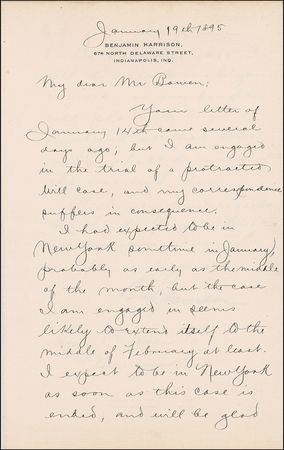 January 19th 1895
BENJAMIN HARRISON,
674 NORTH DELAWARE STREET,
INDIANAPOLIS, IND.
My dear Mr Bowen;
Your letter of
January 14th came several
days ago; but I am engaged
in the trial of a protracted
will case, and my correspondence
suffers in consequence.
I had expected to be in
New York sometime in January,
probably as early as the middle
of the month, but the case
I am engaged in seems
likely to extend itself to the
middle of February at least.
I expect to be in New York
as soon as this case is
ended, and will be glad